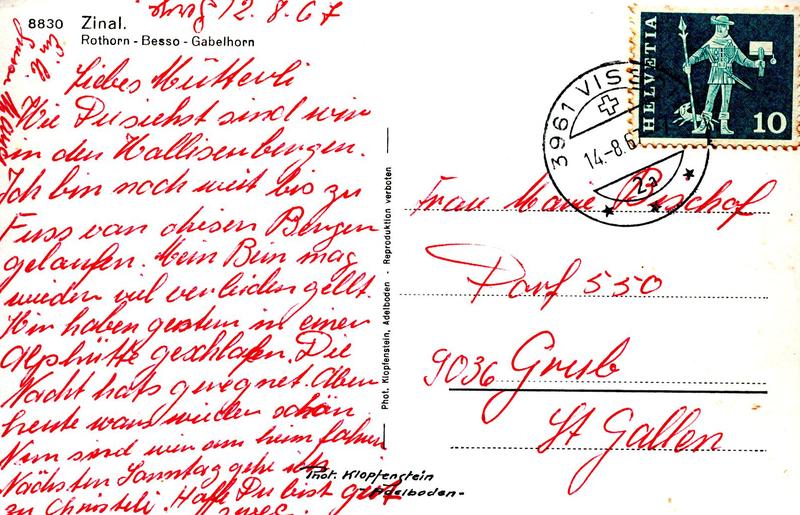 12.8.67
8830 Zinal.
Rothorn - Besso - Gabelhorn
Liebes Mütterli
Wie Du siehst sind wir
in den Wallisenbergen.
Ich bin noch weit bis zu
Fuss von diesen Bergen
gelaufen. Mein Bein mag
wieder viel verleiden gellt.
Wir haben gestern in einer
Alphütte geschlafen. Die
Nacht hats geregnet. Aber
heute wars wieder schön
Nun sind wir am heim fahren
Nächsten Sonntag gehe ich
zu Christeli. Hoffe Du bist gut
Phot. Klopfenstein
- Adelboden -
Phot. Klopfenstein, Adelboden - Reproduktion verboten
HELVETIA
10
3961 VIS
14.-8.67
Frau Marie Bischof
Dorf 550
9036 Grub
St Gallen